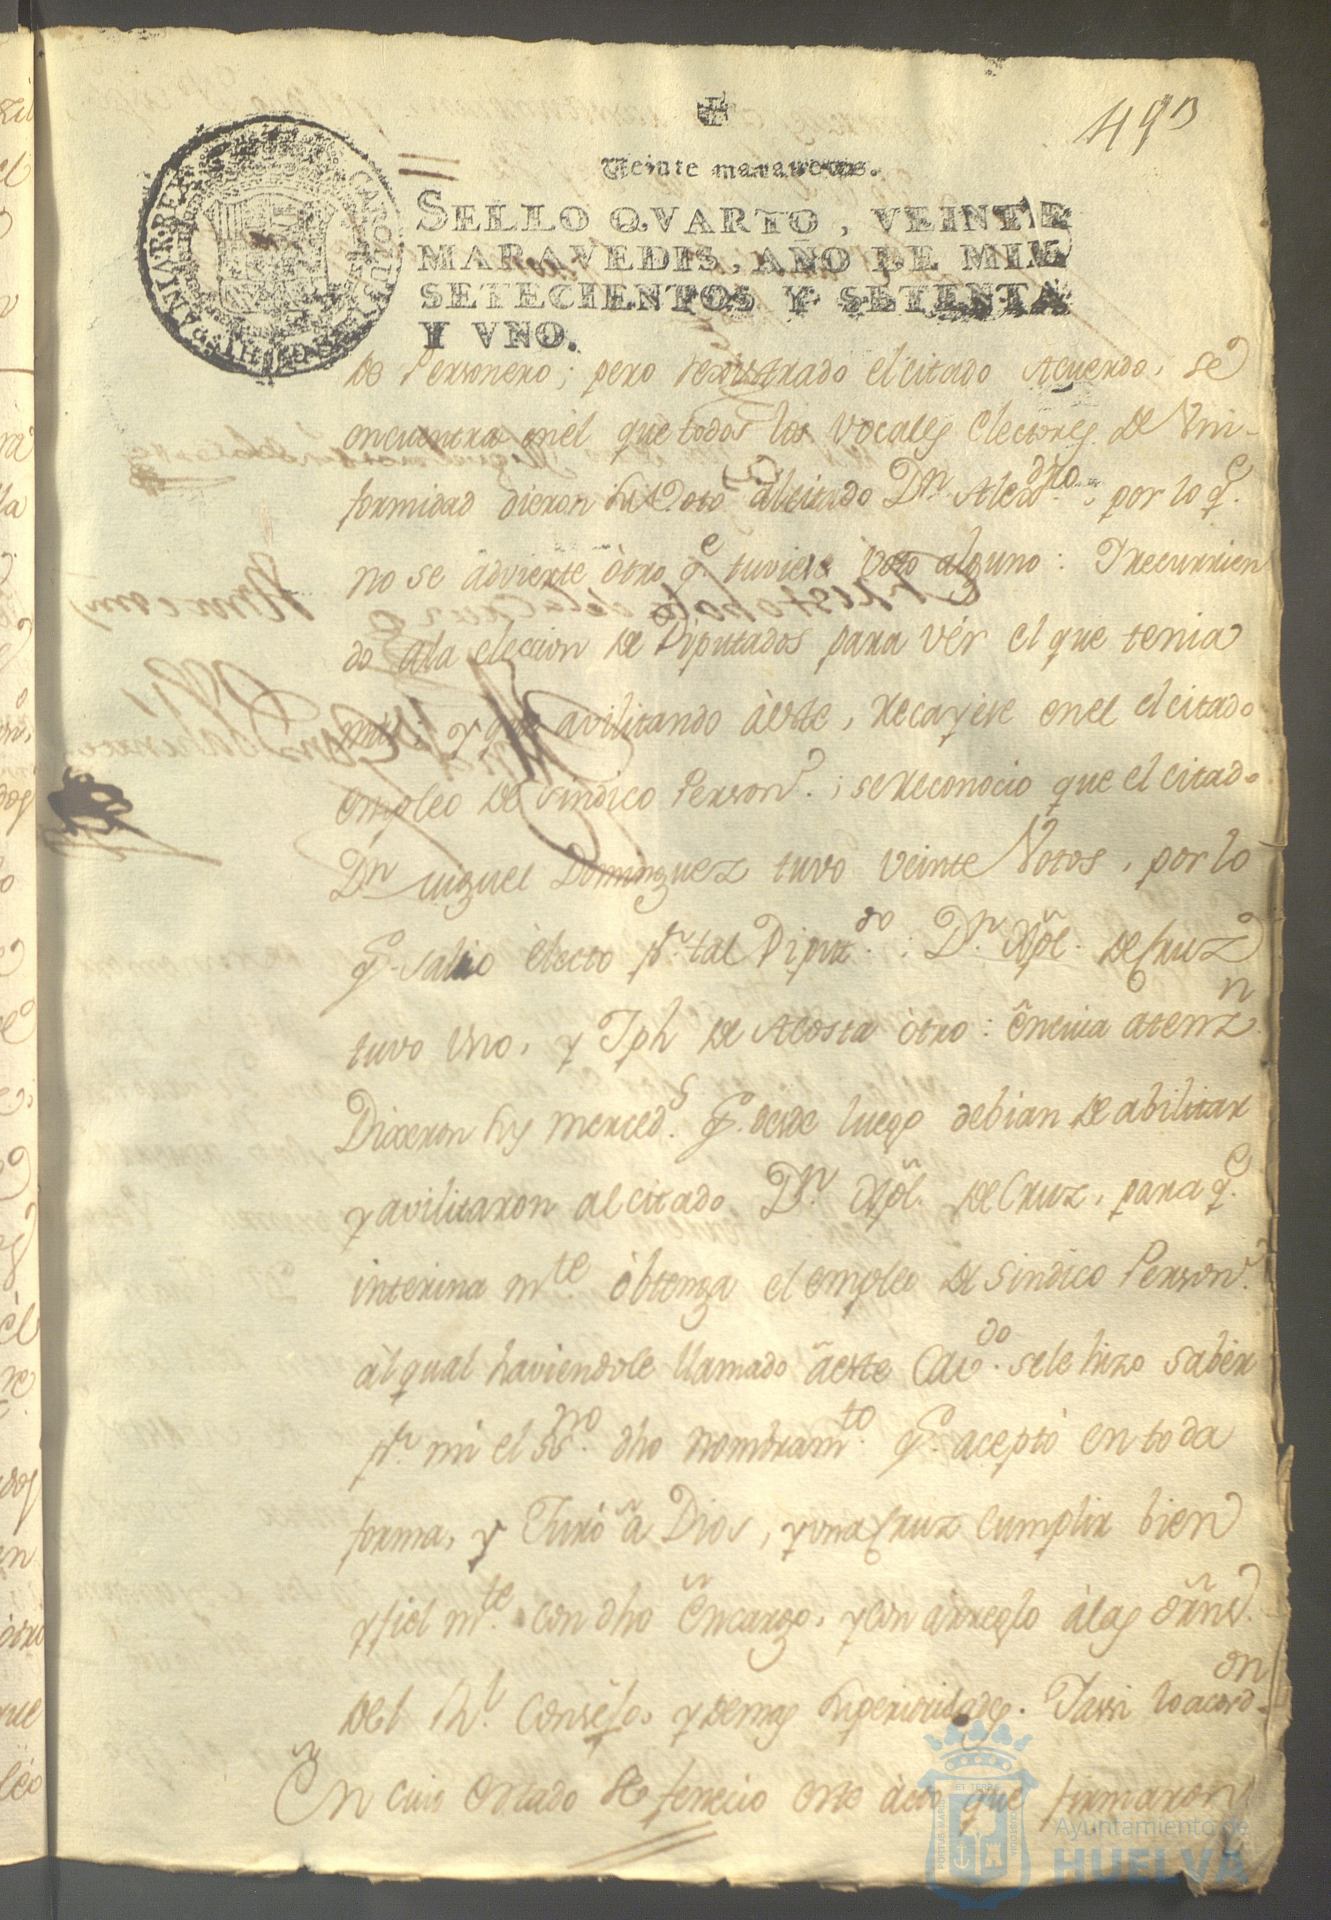 493
Veinte maravedis.
SELLO QVARTO, VEINTE
MARAVEDIS, AÑO DE MIL
SETECIENTOS Y SETENTA
Y VNO.
de Personero; pero rexistrado el citado Acuerdo, se
encuentra en el que todos los Vocales Electores de Vni-
formidad dieron su Voto al citado Dn. Alexdro., por lo q.e
no se advierte òtro q.e tuviese Voto alguno: Y recurrien
do ala eleccion de Diputados para vér el que tenia
mas, y que avilitando àeste, recayese en el el citado
empleo de Sindico Person.o; se reconocio que el citado
Dn. Miguel Dominguez tuvo veinte Votos, por lo
q.e salio èlecto p.r tal Diput.do: Dn. Xpl. de Cruz
tuvo Uno, y Jph de Acosta òtro: En cuia atenz.n
Dixeron sus merced.s q.e desde luego debian de abilitar
y avilitaron al citado Dn. Xpl. de Cruz, para q.e
interinam.te òbtenga el empleo de Sindico Person.o
al qual haviendole llamado àeste Cav.do se le hizo saber
p.r mi el SS.no dho nombram.to q.e aceptò en toda
forma, y Jurò à Dios, y una Cruz cumplir bien
y fielm.te con dho Encargo, y con arreglo àlas òrñs.
del Rl. Consejo, y demas superioridades. Y assi lo acord-
on
En cuio estado se fenecio este àcto que firmaron
Ayuntamiento de
HUELVA